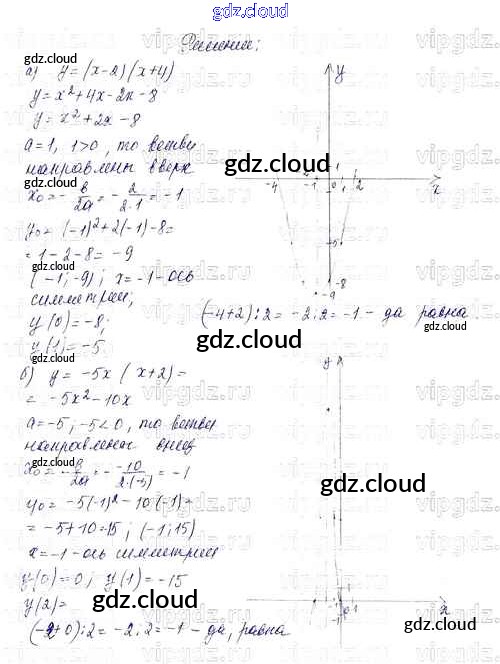 gdz.cloud
Решение:
а) y = (x-2)(x+4)
y = x² + 4x - 2x - 8
y = x² + 2x - 8
a = 1, 1>0, то ветви
направлены вверх
x₀ = - в/2a = - 2/2·1 = -1
y₀ = (-1)² + 2(-1) - 8 =
= 1 - 2 - 8 = -9
(-1; -9); x = -1 - ось
симметрии;
y(0) = -8;
y(1) = -5
(-4+2):2 = -2:2 = -1 - да равна.
б) y = -5x (x+2) =
= -5x² - 10x
a = -5; -5<0, то ветви
направлены вниз
x₀ = - в/2a = - -10/2·(-5) = -1
y₀ = -5(-1)² - 10·(-1) =
= -5+10=15; (-1; 15)
x = -1 - ось симметрии
y(0) = 0; y(1) = -15
y(2) =
(-2+0):2 = -2:2 = -1 - да, равна
y
x
-4 -1 0 1 2
1
-5
-8
-9
y
x
0 1
gdz.cloud
gdz.cloud
gdz.cloud
gdz.cloud
gdz.cloud
gdz.cloud
gdz.cloud
gdz.cloud
gdz.cloud
gdz.cloud
gdz.cloud